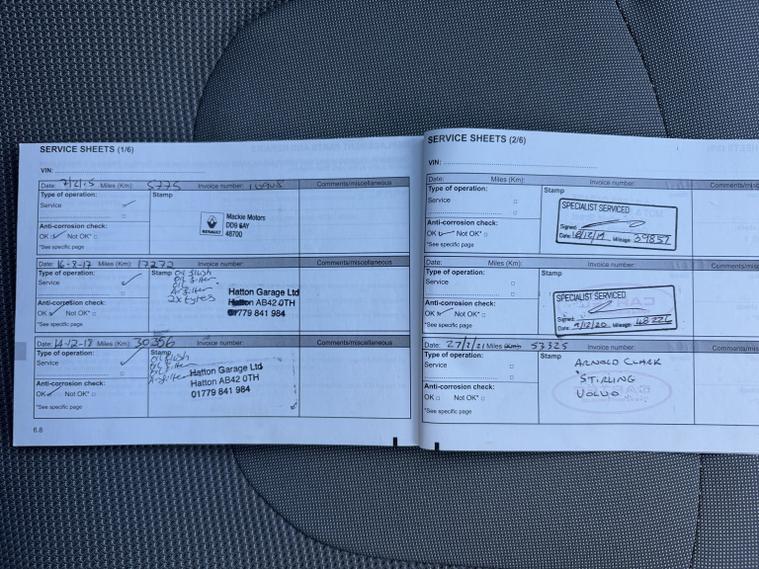 SERVICE SHEETS (1/6)
VIN:
Date: Miles (Km): 5775 Invoice number:
Comments/miscellaneous
Type of operation:
Stamp
Service
Anti-corrosion check:
OK Not OK*
*See specific page
RENAULT
Mackie Motors
DD9 6AY
48700
Date: 16-8-17 Miles (Km): 17272 Invoice number:
Comments/miscellaneous
Type of operation:
Stamp Oil flush
Oil filter
Air filter
2x tyres
Service
Anti-corrosion check:
OK Not OK*
*See specific page
Hatton Garage Ltd
Hatton AB42 0TH
01779 841 984
Date: 14-12-18 Miles (Km): 30356 Invoice number:
Comments/miscellaneous
Type of operation:
Stamp
Oil flush
Service
Anti-corrosion check:
OK Not OK*
*See specific page
Hatton Garage Ltd
Hatton AB42 0TH
01779 841 984
6.8
SERVICE SHEETS (2/6)
VIN:
Date: Miles (Km): Invoice number:
Type of operation:
Stamp
Service
Anti-corrosion check:
OK Not OK*
*See specific page
SPECIALIST SERVICED
Signed
Date: Mileage 39857
Date: Miles (Km): Invoice number:
Type of operation:
Stamp
Service
Anti-corrosion check:
OK Not OK*
*See specific page
SPECIALIST SERVICED
Signed
Date: Mileage
Date: 27/2/21 Miles (Km): 53325 Invoice number:
Type of operation:
Stamp
Service
Anti-corrosion check:
OK Not OK*
*See specific page
ARNOLD CLARK
STIRLING
VOLVO